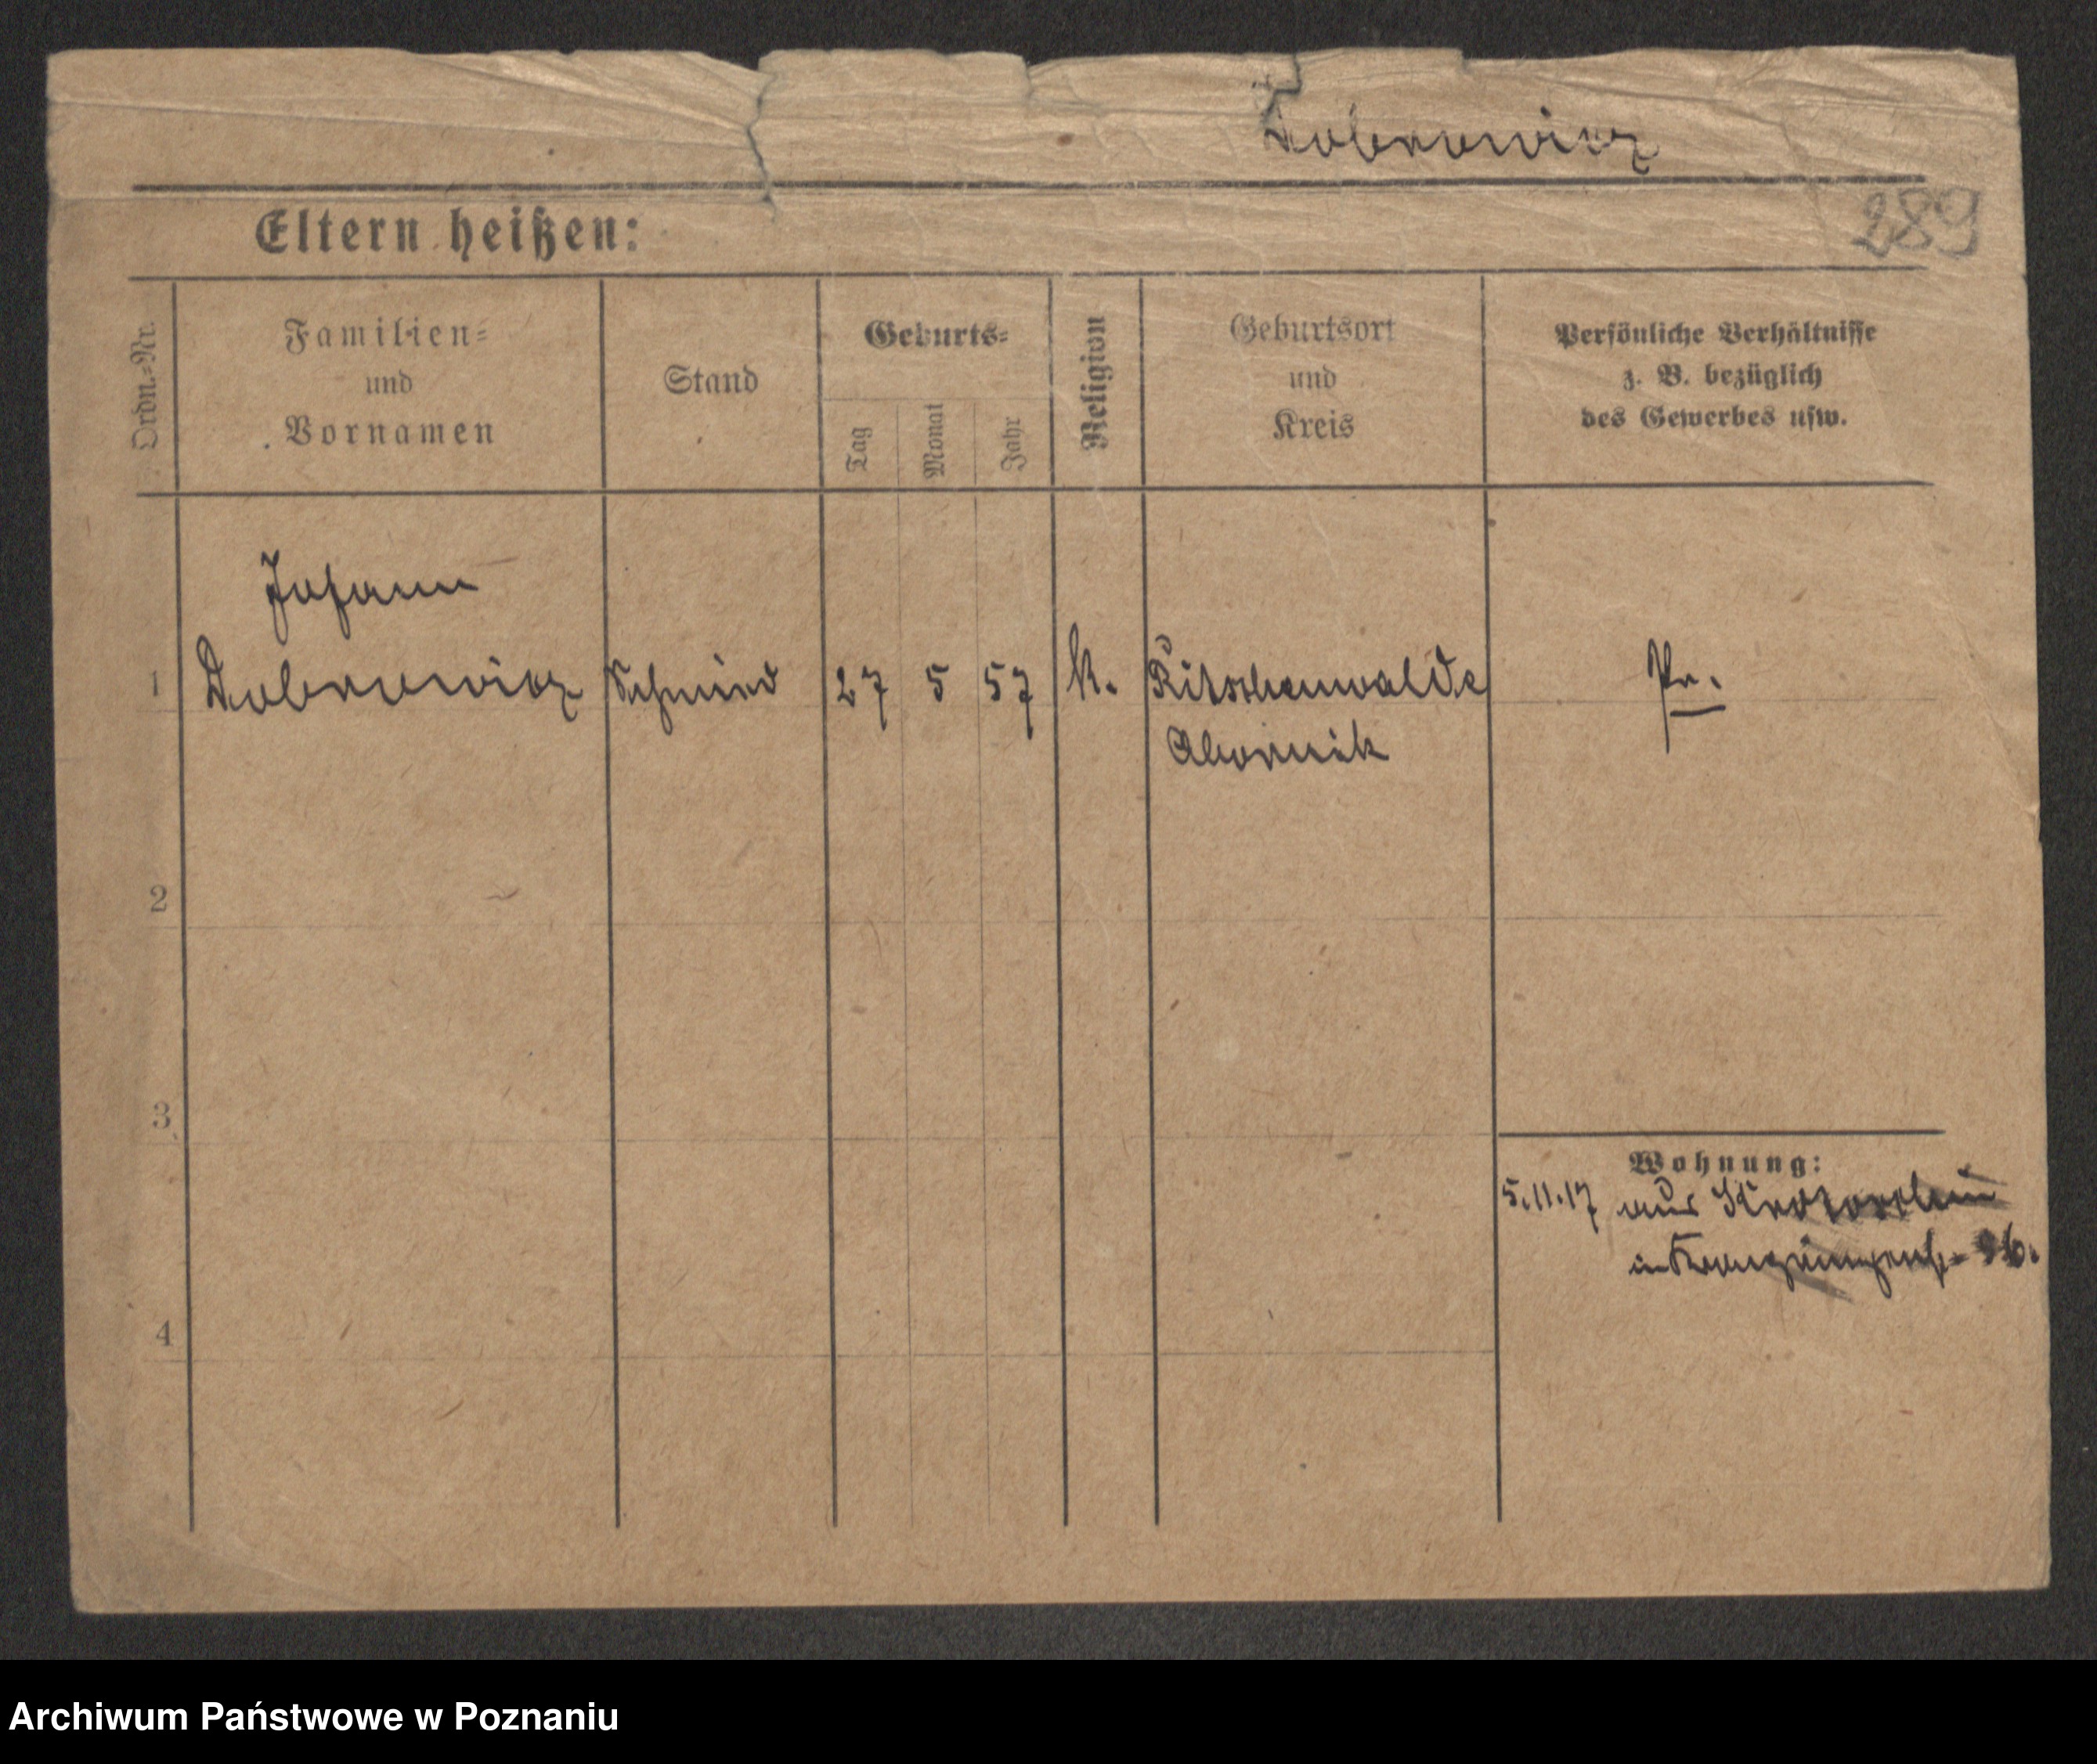 Dobrowicz
289
Eltern heißen:
Ordn.-Nr.
Familien=
und
Vornamen
Stand
Geburts=
Tag
Monat
Jahr
Religion
Geburtsort
und
Kreis
Persönliche Verhältnisse
z. B. bezüglich
des Gewerbes usw.
Johann
1 Dobrowicz Schmied 27 5 57 k. Ritschenwalde Pr.
Obornik
2
3
Wohnung:
5.11.17 aus Krotoschin
in
4
Archiwum Państwowe w Poznaniu